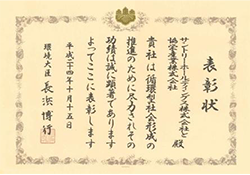 表彰状
サントリーホールディングス株式会社
協栄産業株式会社 殿
貴社は循環型社会形成の
推進のために尽力されその
功績は誠に顕著であります
よってここに表彰します
平成二十四年十月十五日
環境大臣 長浜博行